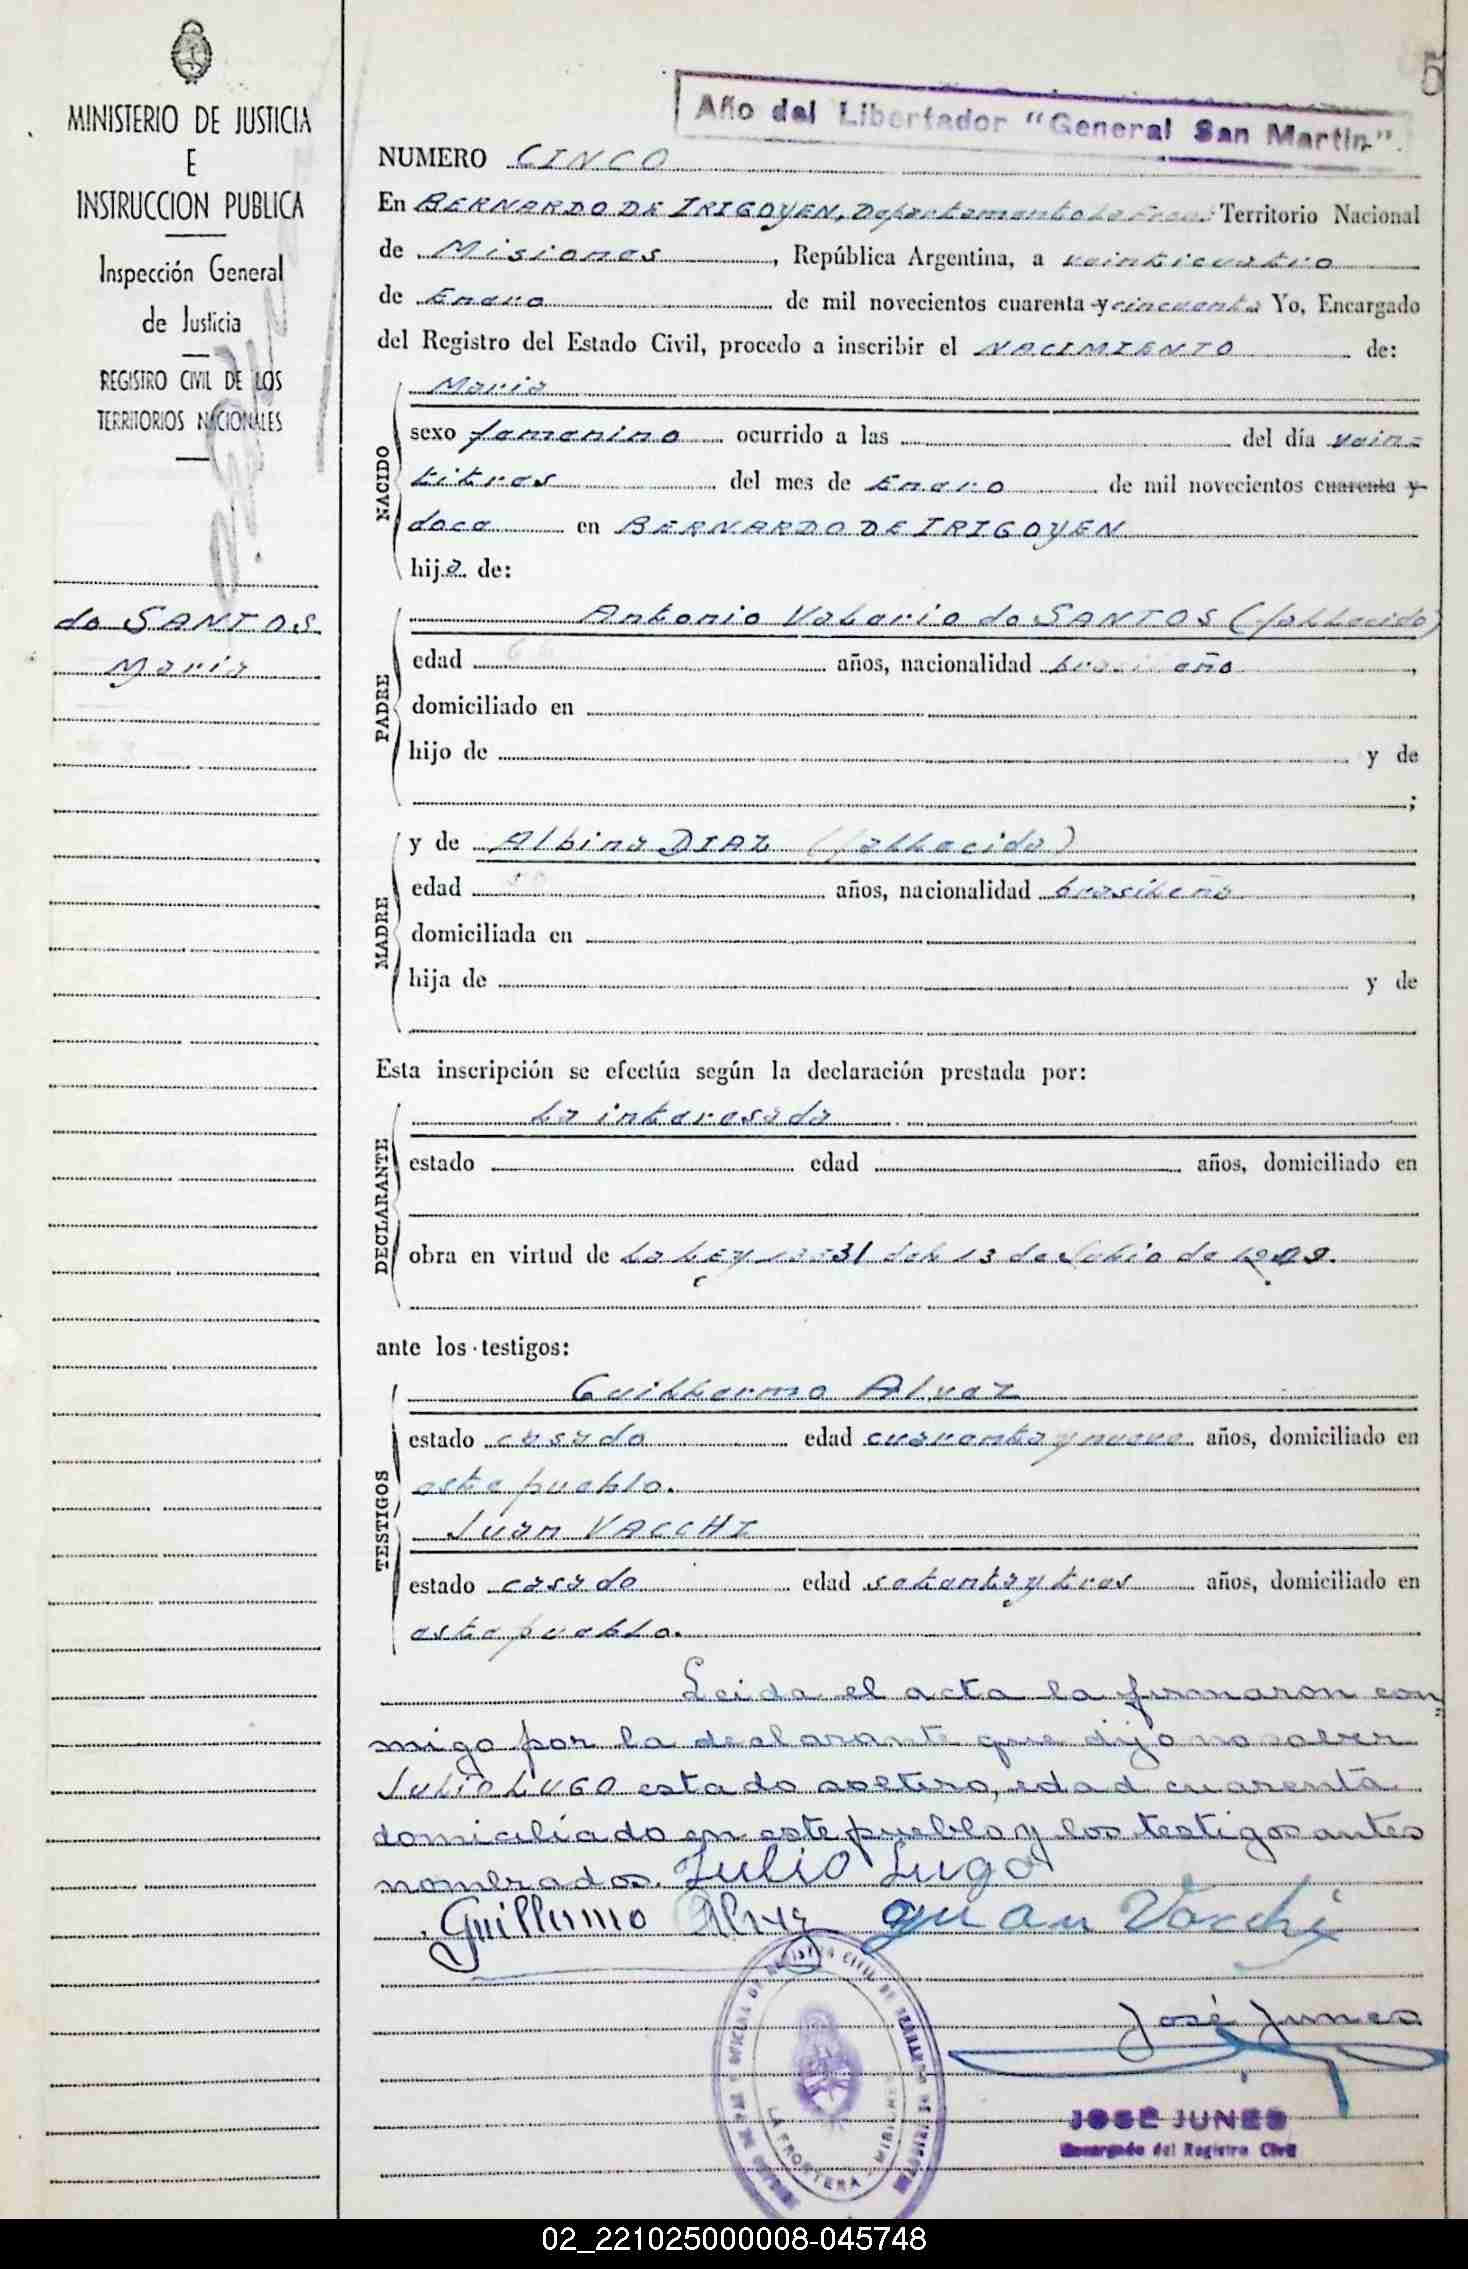 5
Año del Libertador "General San Martin".
MINISTERIO DE JUSTICIA
E
INSTRUCCION PUBLICA
Inspección General
de Justicia
REGISTRO CIVIL DE LOS
TERRITORIOS NACIONALES
do SANTOS
Maria
NUMERO CINCO
En BERNARDO DE IRIGOYEN, Departamento La Fron. Territorio Nacional
de Misiones, República Argentina, a veinticuatro
de Enero de mil novecientos cuarenta y cincuenta Yo, Encargado
del Registro del Estado Civil, procedo a inscribir el NACIMIENTO de:
NACIDO
Maria
sexo femenino ocurrido a las del día vein=
titres del mes de Enero de mil novecientos cuarenta y
doce en BERNARDO DE IRIGOYEN
hija de:
PADRE
Antonio Valerio do SANTOS (fallecido)
edad años, nacionalidad brasileño,
domiciliado en
hijo de y de
;
MADRE
y de Albina DIAZ (fallecida)
edad años, nacionalidad brasileña,
domiciliada en
hija de y de
Esta inscripción se efectúa según la declaración prestada por:
DECLARANTE
La interesada
estado edad años, domiciliado en
obra en virtud de La Ley del 13 de Julio de
ante los testigos:
TESTIGOS
Guillermo Alvez
estado casado edad cuarenta y nueve años, domiciliado en
este pueblo.
Juan VACCHI
estado casado edad setenta y tres años, domiciliado en
este pueblo.
Leida el acta la firmaron con=
migo por la declarante que dijo no saber
JULIO LUGO estado soltero, edad cuarenta
domiciliado en este pueblo y los testigos antes
nombrados. Julio Lugo
Guillermo Alvez Juan Vacchi
José Junes
JOSÉ JUNES
Encargado del Registro Civil
LA FRONTERA MISIONES
02_221025000008-045748